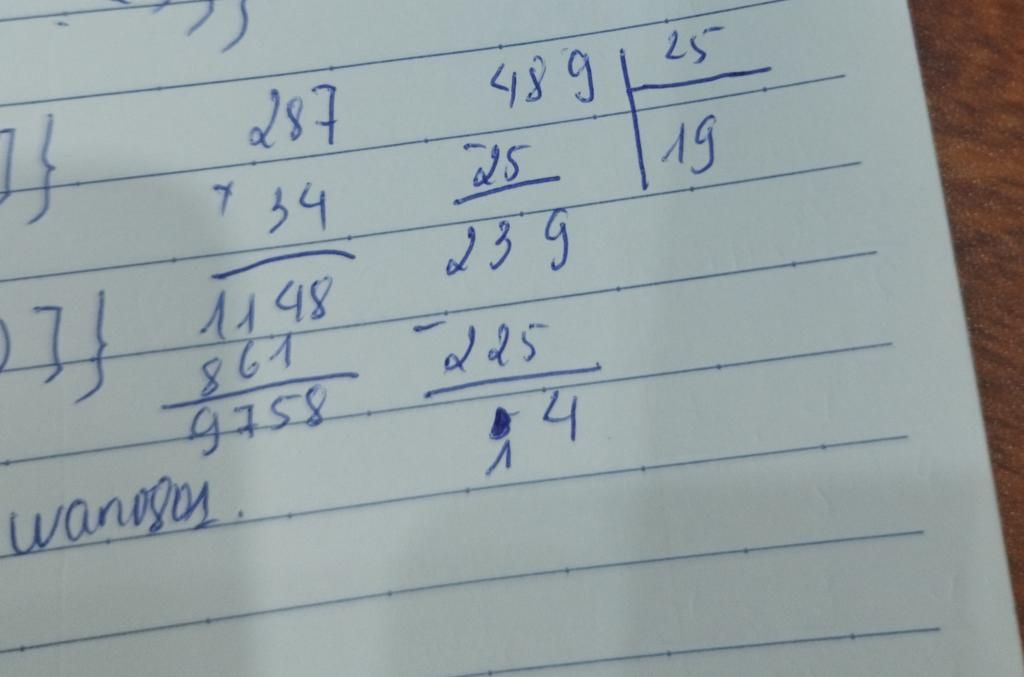 287
× 34
1148
861
9758
489 | 25
-25 | 19
239
-225
14
]}
)]}